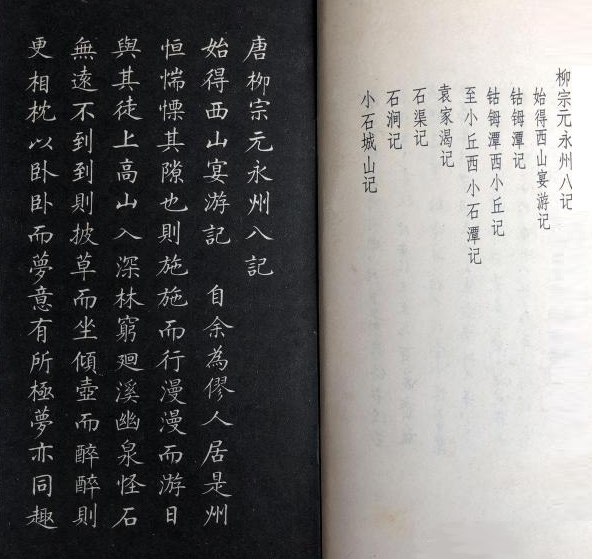 柳宗元永州八记
始得西山宴游记
钴鉧潭记
钴鉧潭西小丘记
至小丘西小石潭记
袁家渴记
石渠记
石涧记
小石城山记
唐柳宗元永州八記
始得西山宴游記 自余為僇人居是州
恒惴慄其隙也則施施而行漫漫而游日
與其徒上高山入深林窮迴溪幽泉怪石
無遠不到到則披草而坐傾壺而醉醉則
更相枕以卧卧而夢意有所極夢亦同趣